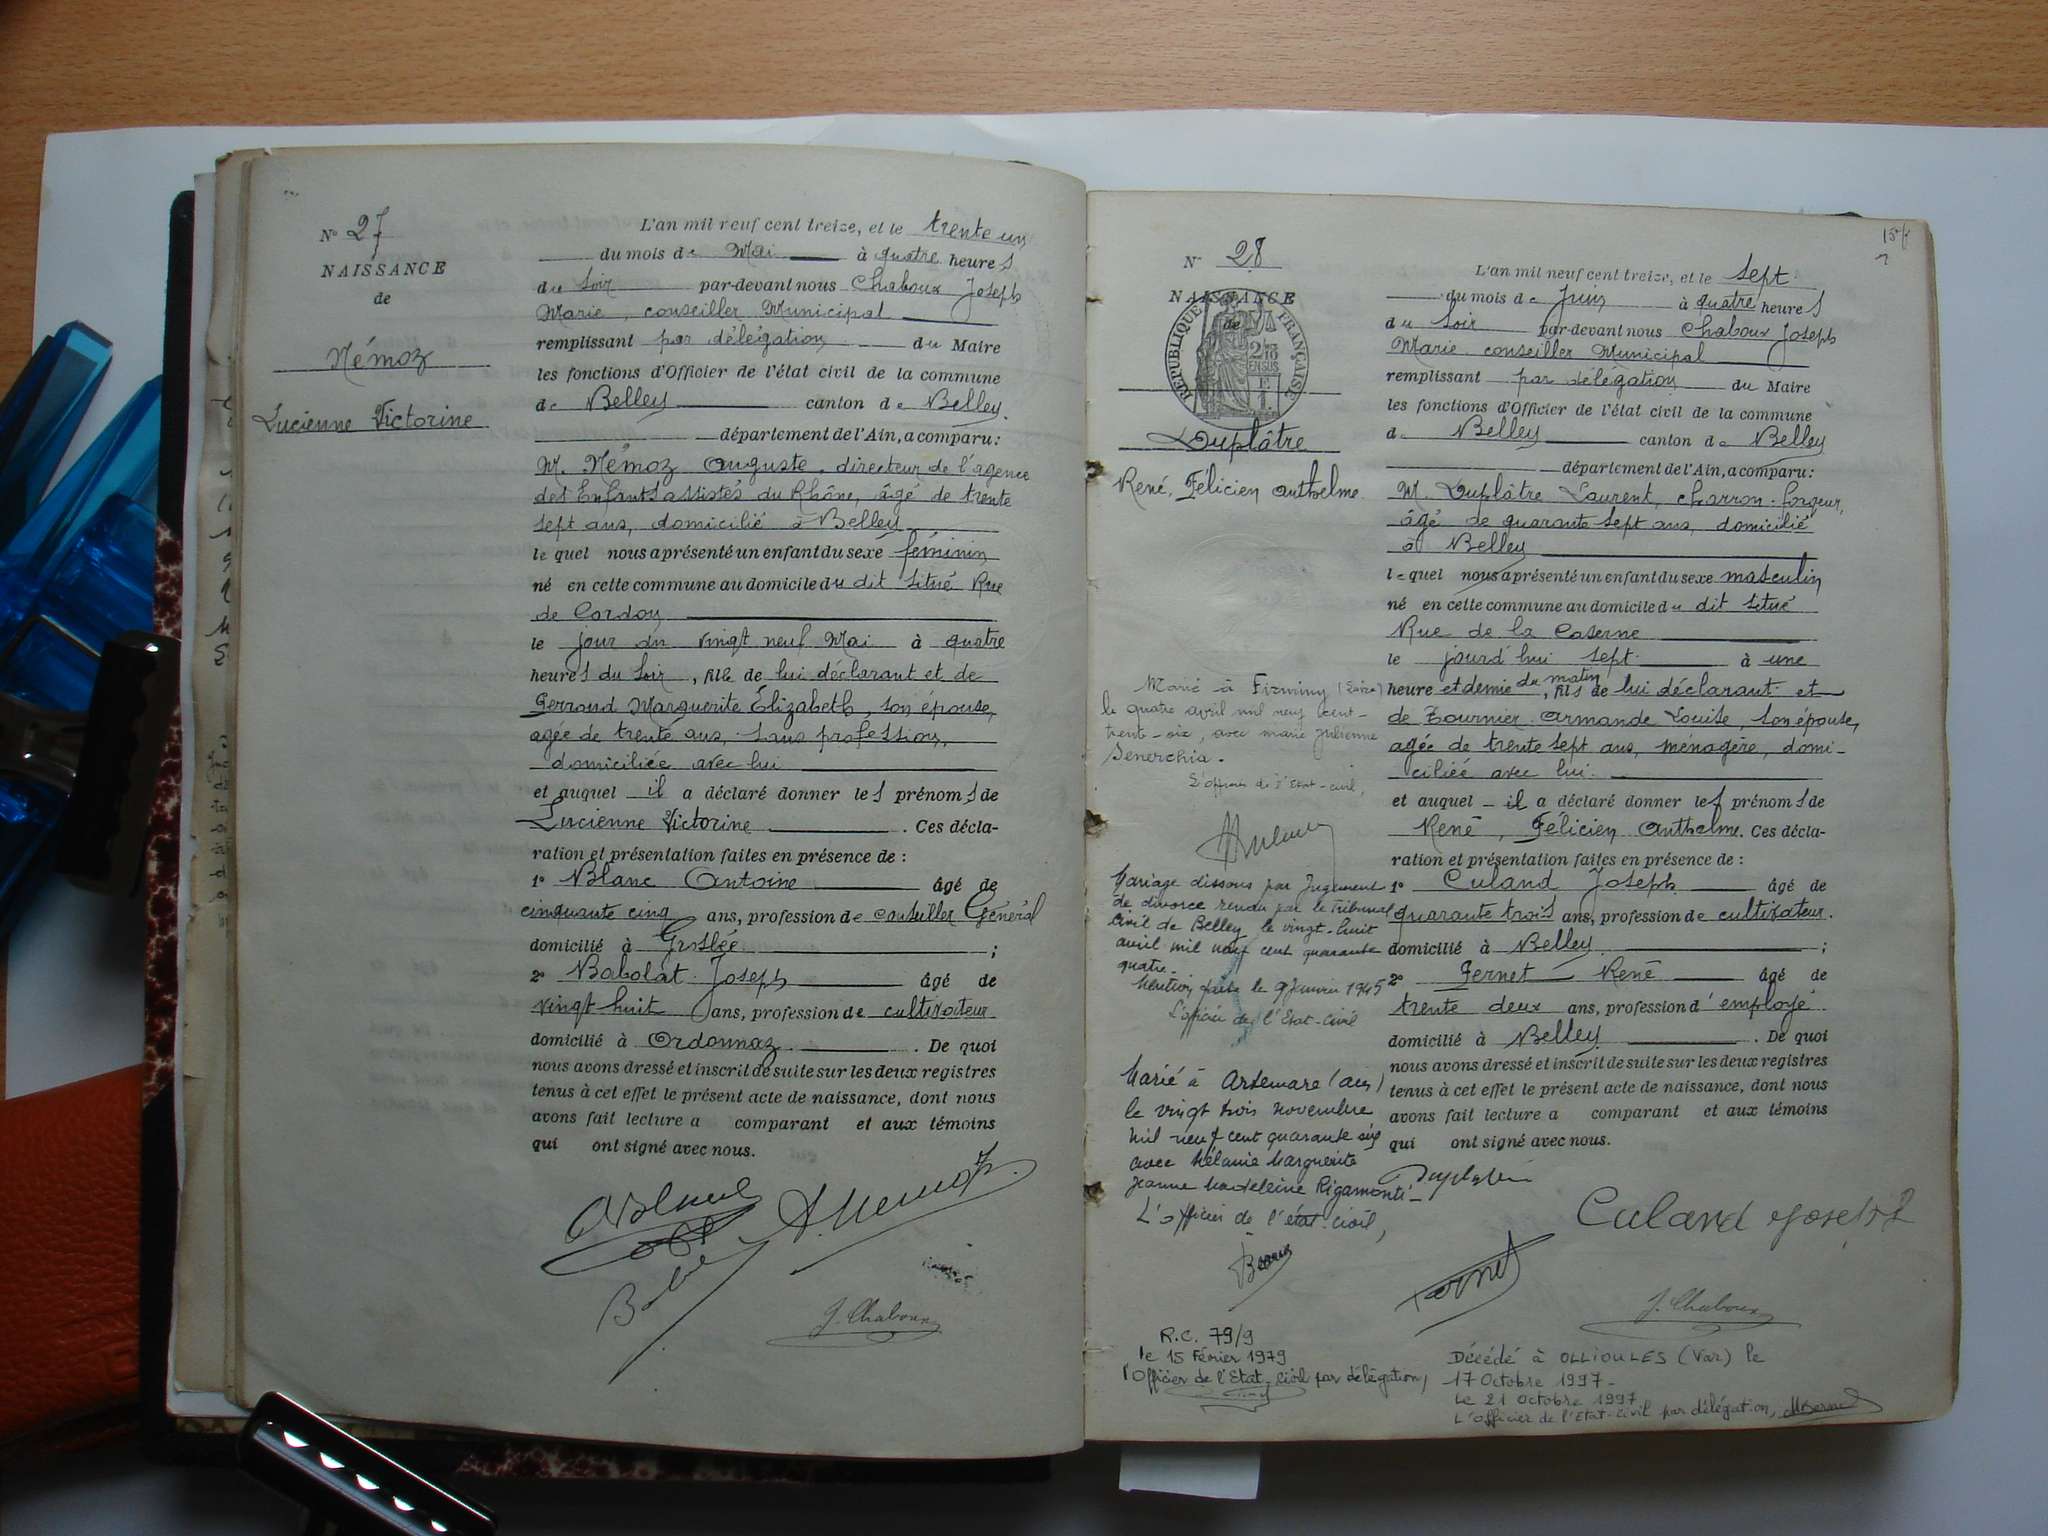 N° 27
NAISSANCE
de
Némoz
Lucienne Victorine
L'an mil neuf cent treize, et le trente un
du mois de Mai à quatre heures
du soir par-devant nous Chaboux Joseph
Marie, conseiller Municipal
remplissant par délégation du Maire
les fonctions d'Officier de l'état civil de la commune
de Belley canton de Belley.
département de l'Ain, a comparu :
M. Némoz Auguste, directeur de l'agence
des Enfants assistés du Rhône, âgé de trente
sept ans, domicilié à Belley
le quel nous a présenté un enfant du sexe féminin
né en cette commune au domicile du dit situé Rue
de Cordon
le jour du vingt neuf Mai à quatre
heures du soir, fille de lui déclarant et de
Perraud Marguerite Élizabeth, son épouse,
agée de trente ans, sans profession,
domiciliée avec lui
et auquel il a déclaré donner les prénoms de
Lucienne Victorine. Ces décla-
ration et présentation faites en présence de :
1° Blanc Antoine âgé de
cinquante cinq ans, profession de conseiller Général
domicilié à Groslée ;
2° Babolat Joseph âgé de
vingt huit ans, profession de cultivateur
domicilié à Ordonnaz. De quoi
nous avons dressé et inscrit de suite sur les deux registres
tenus à cet effet le présent acte de naissance, dont nous
avons fait lecture a comparant et aux témoins
qui ont signé avec nous.
A. Nemoz
J. Chaboux
N° 28
NAISSANCE
de
RÉPUBLIQUE FRANÇAISE
Duplâtre
René, Félicien Anthelme
L'an mil neuf cent treize, et le sept
du mois de Juin à quatre heures
du soir par-devant nous Chaboux Joseph
Marie conseiller Municipal
remplissant par délégation du Maire
les fonctions d'Officier de l'état civil de la commune
de Belley canton de Belley
département de l'Ain, a comparu :
M. Duplâtre Laurent, charron-forgeur,
âgé de quarante sept ans, domicilié
à Belley
le quel nous a présenté un enfant du sexe masculin
né en cette commune au domicile du dit situé
Rue de la Caserne
le jourd'hui sept à une
heure et demie du matin, fils de lui déclarant et
de Tournier Armande Louise, son épouse,
agée de trente sept ans, ménagère, domi-
ciliée avec lui.
et auquel il a déclaré donner les prénoms de
René, Félicien Anthelme. Ces décla-
ration et présentation faites en présence de :
1° Culand Joseph âgé de
quarante trois ans, profession de cultivateur.
domicilié à Belley ;
2° Pernet René âgé de
trente deux ans, profession d'employé
domicilié à Belley. De quoi
nous avons dressé et inscrit de suite sur les deux registres
tenus à cet effet le présent acte de naissance, dont nous
avons fait lecture a comparant et aux témoins
qui ont signé avec nous.
Marié à Firminy (Loire)
le quatre avril mil neuf cent-
trente-six, avec Marie Julienne
Senerchia.
L'officier de l'Etat-civil,
Mariage dissous par Jugement
de divorce rendu par le Tribunal
civil de Belley le vingt-huit
avril mil neuf cent quarante
quatre.
Mention faite le 9 Janvier 1945
L'officier de l'Etat-Civil
Marié à Artemare (Ain)
le vingt trois novembre
mil neuf cent quarante six
avec Mélanie Marguerite
Jeanne Madeleine Rigamonti-
L'officier de l'état-civil,
Duplatre
Culand Joseph
Pernet
J. Chaboux
R.C. 79/9
le 15 Février 1979
l'Officier de l'Etat-Civil par délégation,
Décédé à OLLIOULES (Var) le
17 Octobre 1997-
Le 21 Octobre 1997
L'Officier de l'Etat-Civil par délégation,